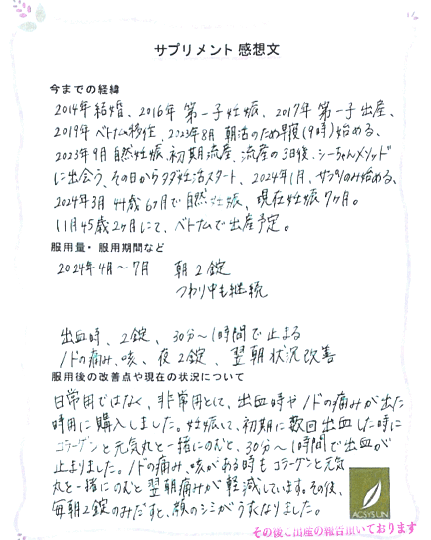 サプリメント 感想文
今までの経緯
2014年 結婚、2016年 第一子妊娠、2017年 第一子出産、
2019年 ベトナム移住、2023年8月 朝活のため早寝(9時)始める、
2023年9月 自然妊娠、初期流産、流産の3日後、シーちゃんメソッド
に出会う、その日からタダ妊活スタート、2024年1月、サプリのみ始める、
2024年3月 44歳6ヶ月で自然妊娠、現在妊娠7ヶ月。
11月45歳2ヶ月にて、ベトナムで出産予定。
服用量・服用期間など
2024年4月〜7月 朝2錠
つわり中も継続
出血時、2錠、30分〜1時間で止まる
ノドの痛み、咳、夜2錠、翌朝状況改善
服用後の改善点や現在の状況について
日常用ではなく、非常用として、出血時やノドの痛みが出た
時用に購入しました。妊娠して、初期に数回出血した時に
コラーゲンと元気丸と一緒にのむと、30分〜1時間で出血が
止まりました。ノドの痛み、咳がある時もコラーゲンと元気
丸と一緒にのむと翌朝痛みが軽減しています。その後、
毎朝2錠のみだすと、顔のシミがうすくなりました。
ACSYSLIN
その後ご出産の報告頂いております